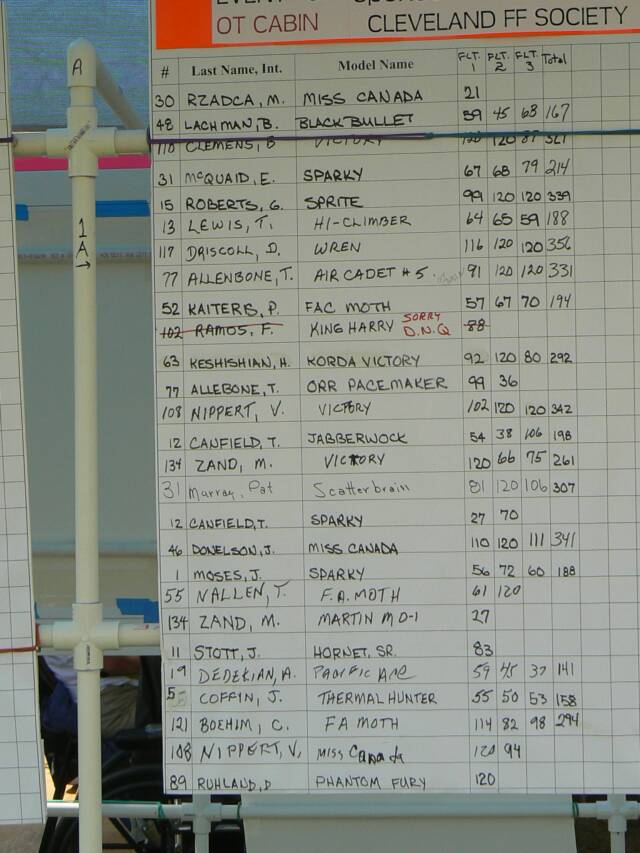 OT CABIN CLEVELAND FF SOCIETY
# Last Name, Int. Model Name FLT. 1 FLT. 2 FLT. 3 Total
30 RZADCA, M. MISS CANADA 21
48 LACHMAN, B. BLACK BULLET 59 45 63 167
118 CLEMENS, B VICTORY 120 120
31 McQUAID, E. SPARKY 67 68 79 214
15 ROBERTS, G. SPRITE 99 120 120 339
13 LEWIS, T. HI-CLIMBER 64 65 59 188
117 DRISCOLL, D. WREN 116 120 120 356
77 ALLENBONE, T. AIR CADET #5 91 120 120 331
52 KAITERS, P. FAC MOTH 57 67 70 194
102 RAMOS, F. KING HARRY SORRY D.N.Q 88
63 KESHISHIAN, H. KORDA VICTORY 92 120 80 292
77 ALLEBONE, T. ORR PACEMAKER 99 36
108 NIPPERT, V. VICTORY 102 120 120 342
12 CANFIELD, T. JABBERWOCK 54 38 106 198
134 ZAND, M. VICTORY 120 66 75 261
31 Murray, Pat Scatterbrain 81 120 106 307
12 CANFIELD, T. SPARKY 27 70
46 DONELSON, J. MISS CANADA 110 120 111 341
1 MOSES, J. SPARKY 56 72 60 188
55 NALLEN, T. F.A. MOTH 61 120
134 ZAND, M. MARTIN M O-1 27
11 STOTT, J. HORNET, SR. 83
19 DEDEKIAN, A. Pacific Ace 59 45 37 141
5 COFFIN, J. THERMAL HUNTER 55 50 53 158
121 BOEHIM, C. FA MOTH 114 82 98 294
108 NIPPERT, V, Miss Canada 120 94
89 RUHLAND, D PHANTOM FURY 120
A
1
A